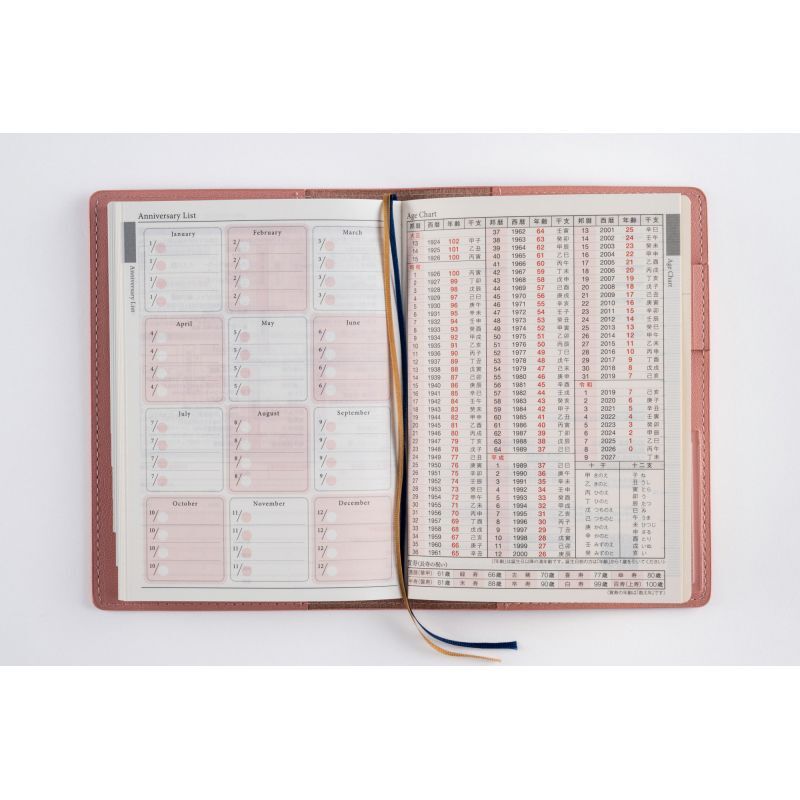 Anniversary List
January
1/
1/
1/
1/
February
2/
2/
2/
2/
March
3/
3/
3/
3/
April
4/
4/
4/
4/
May
5/
5/
5/
5/
June
6/
6/
6/
6/
July
7/
7/
7/
7/
August
8/
8/
8/
8/
September
9/
9/
9/
9/
October
10/
10/
10/
10/
November
11/
11/
11/
11/
December
12/
12/
12/
12/
Anniversary List
Age Chart
邦暦 西暦 年齢 干支
大正
13 1924 102 甲子
14 1925 101 乙丑
15 1926 100 丙寅
昭和
1 1926 100 丙寅
2 1927 99 丁卯
3 1928 98 戊辰
4 1929 97 己巳
5 1930 96 庚午
6 1931 95 辛未
7 1932 94 壬申
8 1933 93 癸酉
9 1934 92 甲戌
10 1935 91 乙亥
11 1936 90 丙子
12 1937 89 丁丑
13 1938 88 戊寅
14 1939 87 己卯
15 1940 86 庚辰
16 1941 85 辛巳
17 1942 84 壬午
18 1943 83 癸未
19 1944 82 甲申
20 1945 81 乙酉
21 1946 80 丙戌
22 1947 79 丁亥
23 1948 78 戊子
24 1949 77 己丑
25 1950 76 庚寅
26 1951 75 辛卯
27 1952 74 壬辰
28 1953 73 癸巳
29 1954 72 甲午
30 1955 71 乙未
31 1956 70 丙申
32 1957 69 丁酉
33 1958 68 戊戌
34 1959 67 己亥
35 1960 66 庚子
36 1961 65 辛丑
邦暦 西暦 年齢 干支
37 1962 64 壬寅
38 1963 63 癸卯
39 1964 62 甲辰
40 1965 61 乙巳
41 1966 60 丙午
42 1967 59 丁未
43 1968 58 戊申
44 1969 57 己酉
45 1970 56 庚戌
46 1971 55 辛亥
47 1972 54 壬子
48 1973 53 癸丑
49 1974 52 甲寅
50 1975 51 乙卯
51 1976 50 丙辰
52 1977 49 丁巳
53 1978 48 戊午
54 1979 47 己未
55 1980 46 庚申
56 1981 45 辛酉
57 1982 44 壬戌
58 1983 43 癸亥
59 1984 42 甲子
60 1985 41 乙丑
61 1986 40 丙寅
62 1987 39 丁卯
63 1988 38 戊辰
64 1989 37 己巳
平成
1 1989 37 己巳
2 1990 36 庚午
3 1991 35 辛未
4 1992 34 壬申
5 1993 33 癸酉
6 1994 32 甲戌
7 1995 31 乙亥
8 1996 30 丙子
9 1997 29 丁丑
10 1998 28 戊寅
11 1999 27 己卯
12 2000 26 庚辰
邦暦 西暦 年齢 干支
13 2001 25 辛巳
14 2002 24 壬午
15 2003 23 癸未
16 2004 22 甲申
17 2005 21 乙酉
18 2006 20 丙戌
19 2007 19 丁亥
20 2008 18 戊子
21 2009 17 己丑
22 2010 16 庚寅
23 2011 15 辛卯
24 2012 14 壬辰
25 2013 13 癸巳
26 2014 12 甲午
27 2015 11 乙未
28 2016 10 丙申
29 2017 9 丁酉
30 2018 8 戊戌
31 2019 7 己亥
令和
1 2019 7 己亥
2 2020 6 庚子
3 2021 5 辛丑
4 2022 4 壬寅
5 2023 3 癸卯
6 2024 2 甲辰
7 2025 1 乙巳
8 2026 0 丙午
9 2027 丁未
十干 十二支
甲 きのえ
乙 きのと
丙 ひのえ
丁 ひのと
戊 つちのえ
己 つちのと
庚 かのえ
辛 かのと
壬 みずのえ
癸 みずのと
子 ね
丑 うし
寅 とら
卯 う
辰 たつ
巳 み
午 うま
未 ひつじ
申 さる
酉 とり
戌 いぬ
亥 い
賀寿(長寿の祝い)
(「年齢」は誕生日以降の満年齢です。誕生日前の方は「年齢」から1歳を引いてください)
還暦(華甲) 61歳 緑寿 66歳 古稀 70歳 喜寿 77歳 傘寿 80歳
半寿(盤寿) 81歳 米寿 88歳 卒寿 90歳 白寿 99歳 百寿(上寿) 100歳
(賀寿の年齢は「数え年」です)
Age Chart